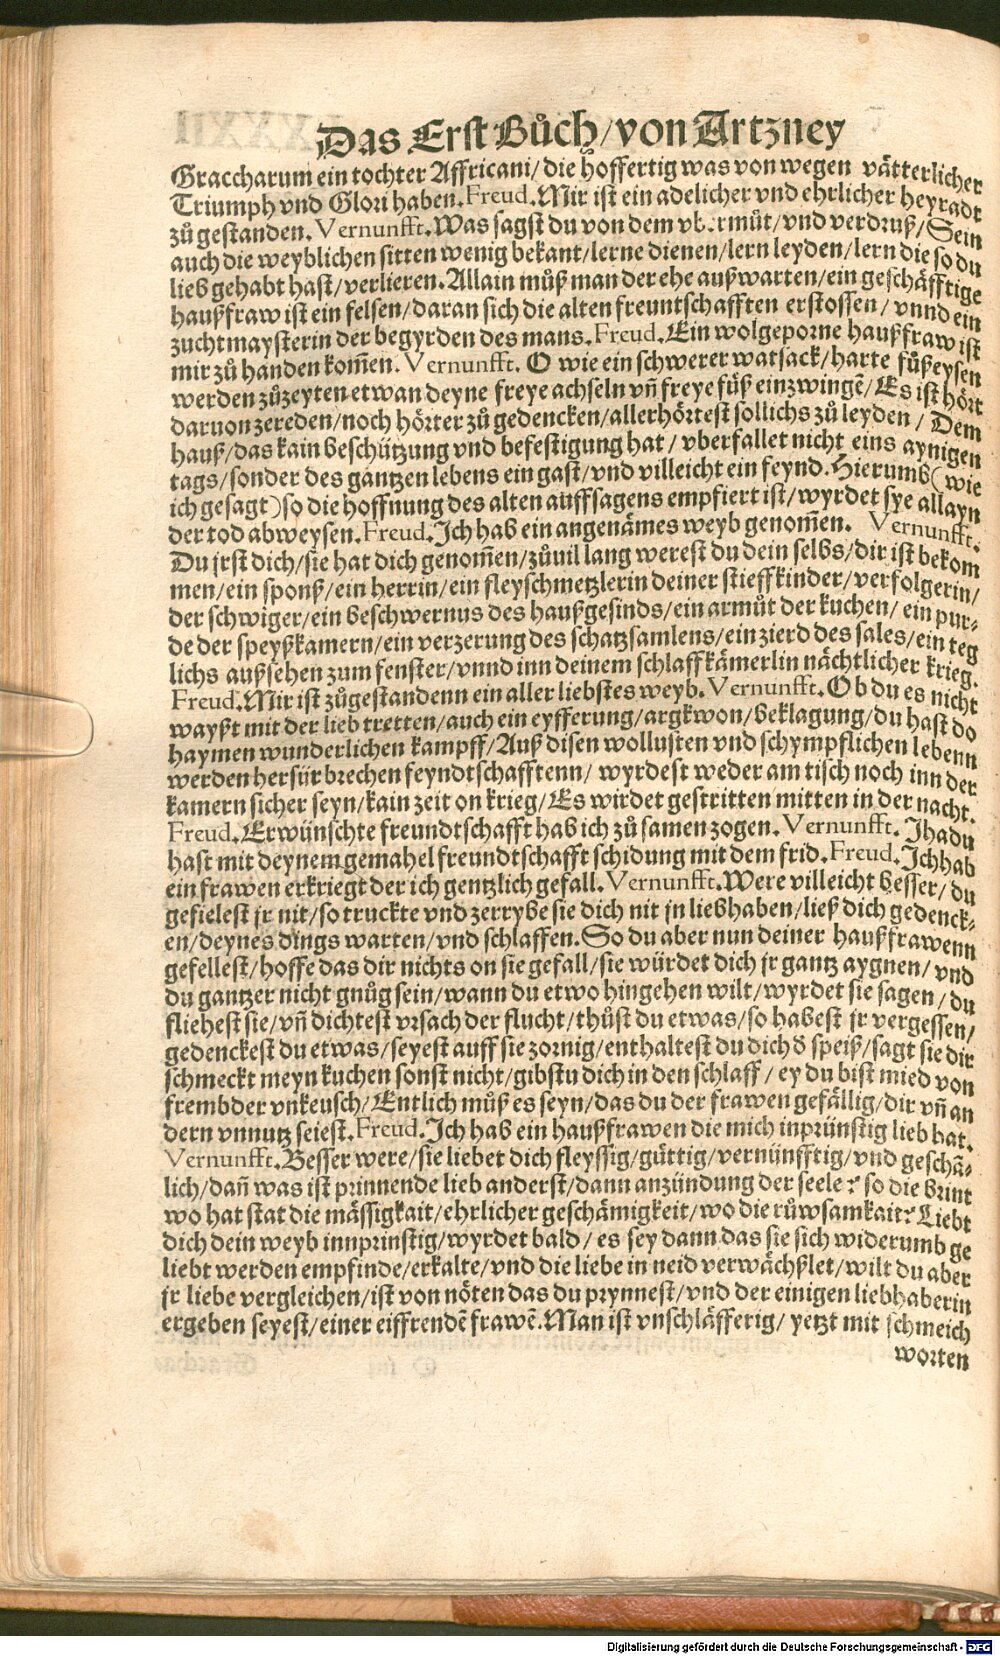 Das Erst Bůch/von Artzney
Graccharum ein tochter Affricani/die hoffertig was von wegen vätterlicher
Triumph vnd Glori haben. Freud. Mir ist ein adelicher vnd ehrlicher heyradt
zů gestanden. Vernunfft. Was sagst du von dem vbermůt/vnd verdruß/Sein
auch die weyblichen sitten wenig bekant/lerne dienen/lern leyden/lern die so du
lieb gehabt hast/verlieren. Allain můß man der ehe außwarten/ein geschäfftige
haußfraw ist ein felsen/daran sich die alten freuntschafften erstossen/vnnd ein
zuchtmaysterin der begyrden des mans. Freud. Ein wolgeporne haußfraw ist
mir zů handen kom̄en. Vernunfft. O wie ein schwerer watsack/harte fůßeysen
werden zůzeyten etwan deyne freye achseln vn̄ freye fůß einzwingē/Es ist hört
daruon zereden/noch hörter zů gedencken/allerhörtest sollichs zů leyden/Dem
hauß/das kain beschützung vnd befestigung hat/vberfallet nicht eins aynigen
tags/sonder des gantzen lebens ein gast/vnd villeicht ein feynd. Hierumb(wie
ich gesagt)so die hoffnung des alten auffsagens empfiert ist/wyrdet sye allayn
der tod abweysen. Freud. Ich hab ein angenämes weyb genom̄en. Vernunfft.
Du jrst dich/sie hat dich genom̄en/zůuil lang werest du dein selbs/dir ist bekom
men/ein sponß/ein herrin/ein fleyschmetzlerin deiner stieffkinder/verfolgerin/
der schwiger/ein beschwernus des haußgesinds/ein armůt der kuchen/ein pur⸗
de der speyßkamern/ein verzerung des schatzsamlens/ein zierd des sales/ein teg
lichs außsehen zum fenster/vnnd inn deinem schlaffkämerlin nächtlicher krieg.
Freud. Mir ist zůgestandenn ein aller liebstes weyb. Vernunfft. Ob du es nicht
wayßt mit der lieb tretten/auch ein eyfferung/argkwon/beklagung/du hast do
haymen wunderlichen kampff/Auß disen wollusten vnd schympflichen lebenn
werden herfür brechen feyndtschafftenn/wyrdest weder am tisch noch inn der
kamern sicher seyn/kain zeit on krieg/Es wirdet gestritten mitten in der nacht.
Freud. Erwünschte freundtschafft hab ich zů samen zogen. Vernunfft. Ihadu
hast mit deynem gemahel freundtschafft schidung mit dem frid. Freud. Ich hab
ein frawen erkriegt der ich gentzlich gefall. Vernunfft. Were villeicht besser/du
gefielest jr nit/so truckte vnd zerrybe sie dich nit jn liebhaben/ließ dich gedenck⸗
en/deynes dings warten/vnd schlaffen. So du aber nun deiner haußfrawenn
gefellest/hoffe das dir nichts on sie gefall/sie würdet dich jr gantz aygnen/vnd
du gantzer nicht gnůg sein/wann du etwo hingehen wilt/wyrdet sie sagen/du
fliehest sie/vn̄ dichtest vrsach der flucht/thůst du etwas/so habest jr vergessen/
gedenckest du etwas/seyest auff sie zornig/enthaltest du dich d̄ speiß/sagt sie dir
schmeckt meyn kuchen sonst nicht/gibstu dich in den schlaff/ey du bist mied von
frembder vnkeusch/Entlich můß es seyn/das du der frawen gefällig/dir vn̄ an
dern vnnutz seiest. Freud. Ich hab ein haußfrawen die mich inprünstig lieb hat.
Vernunfft. Besser were/sie liebet dich fleyssig/güttig/vernünfftig/vnd geschǟ⸗
lich/dan̄ was ist prinnende lieb anderst/dann anzündung der seele? so die brint
wo hat stat die mässigkait/ehrlicher geschämigkeit/wo die růwsamkait? Liebt
dich dein weyb innprinstig/wyrdet bald/es sey dann das sie sich widerumb ge
liebt werden empfinde/erkalte/vnd die liebe in neid verwächßlet/wilt du aber
jr liebe vergleichen/ist von nöten das du prynnest/vnd der einigen liebhaberin
ergeben seyest/einer eiffrendē frawē. Man ist vnschläfferig/yetzt mit schmeich
worten
Digitalisierung gefördert durch die Deutsche Forschungsgemeinschaft - DFG